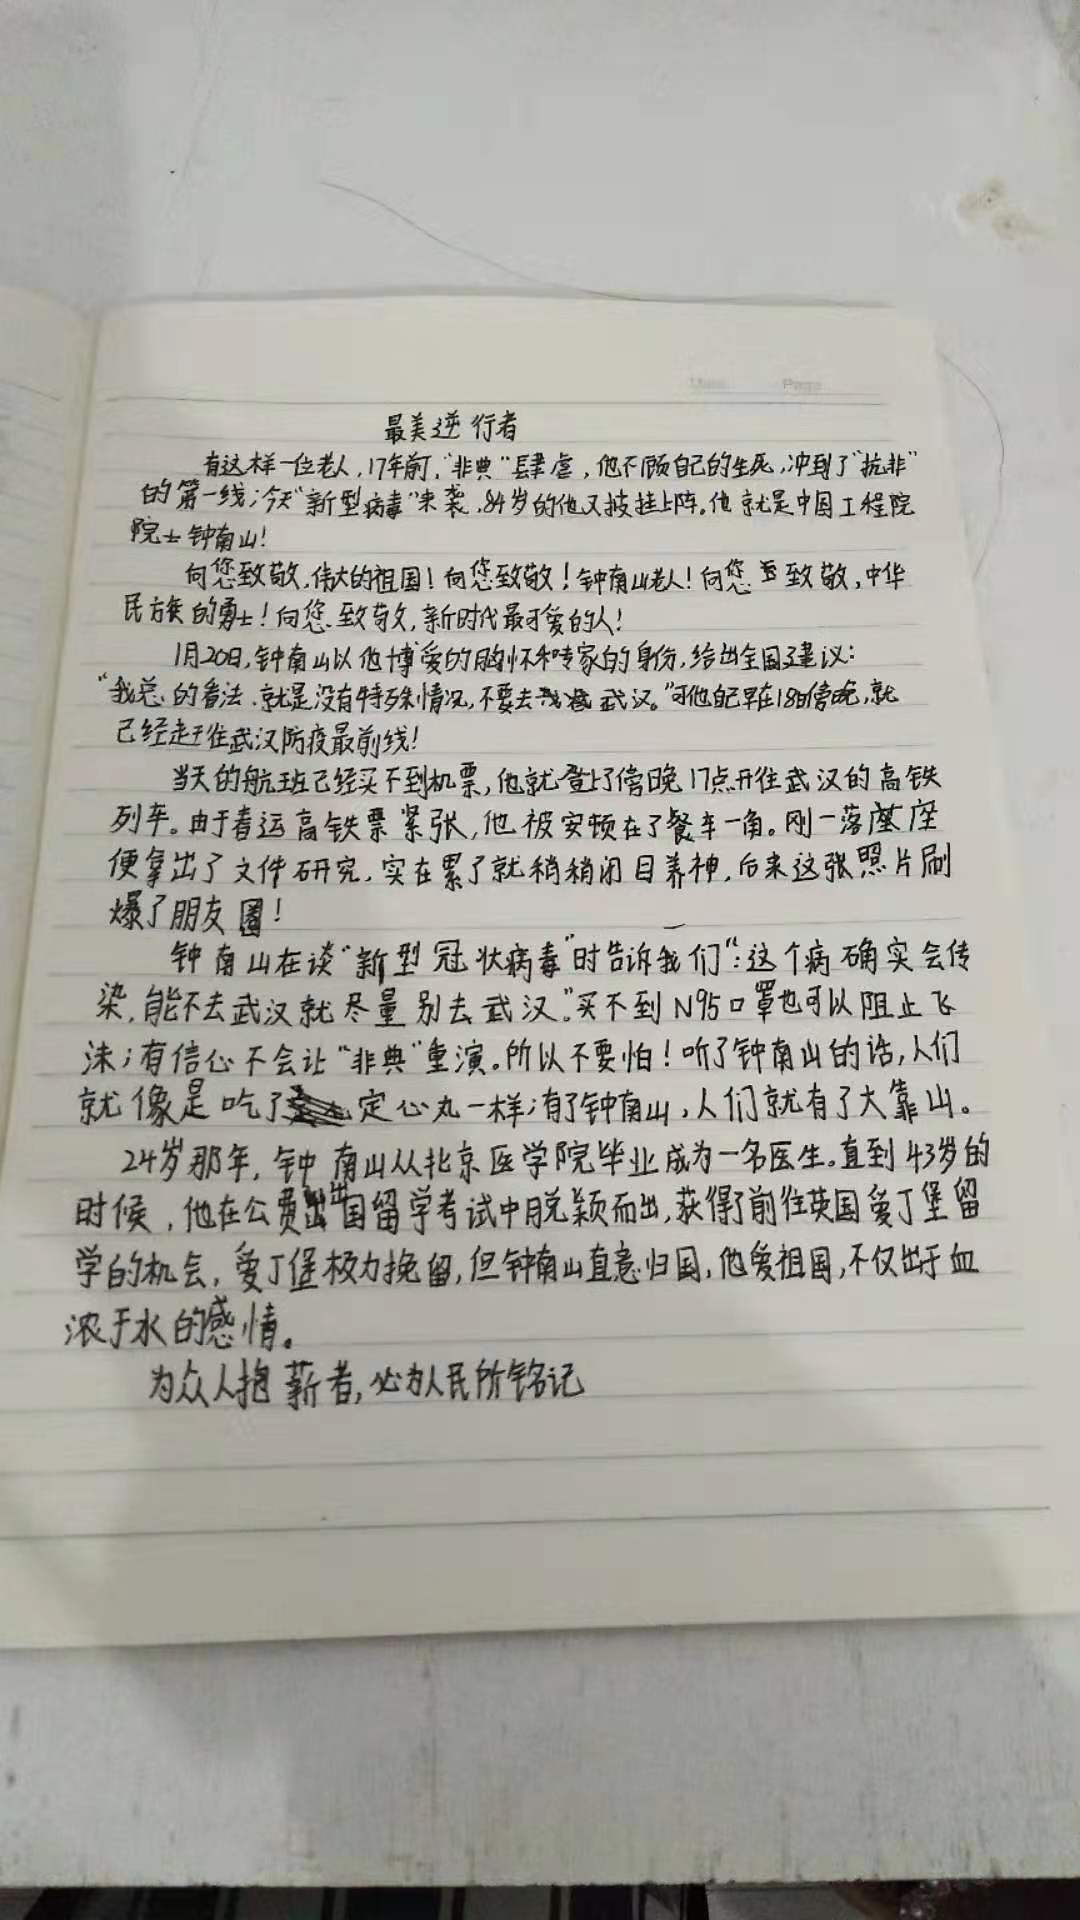 Page
最美逆行者
有这样一位老人,17年前,“非典”肆虐,他不顾自己的生死,冲到了“抗非”
的第一线;今天“新型病毒”来袭,84岁的他又披挂上阵。他就是中国工程院
院士钟南山!
向您致敬,伟大的祖国!向您致敬!钟南山老人!向您致敬,中华
民族的勇士!向您致敬,新时代最可爱的人!
1月20日,钟南山以他博爱的胸怀和专家的身份,给出全国建议:
“我总的看法,就是没有特殊情况,不要去武汉。”可他自己早在18日傍晚,就
已经赶往武汉防疫最前线!
当天的航班已经买不到机票,他就登上了傍晚17点开往武汉的高铁
列车。由于春运高铁票紧张,他被安顿在了餐车一角。刚一落座
便拿出了文件研究,实在累了就稍稍闭目养神,后来这张照片刷
爆了朋友圈!
钟南山在谈“新型冠状病毒”时告诉我们“:这个病确实会传
染,能不去武汉就尽量别去武汉。”买不到N95口罩也可以阻止飞
沫;有信心不会让“非典”重演。所以不要怕!听了钟南山的话,人们
就像是吃了定心丸一样;有了钟南山,人们就有了大靠山。
24岁那年,钟南山从北京医学院毕业成为一名医生。直到43岁的
时候,他在公费出国留学考试中脱颖而出,获得了前往英国爱丁堡留
学的机会,爱丁堡极力挽留,但钟南山直意归国,他爱祖国,不仅出于血
浓于水的感情。
为众人抱薪者,必为人民所铭记